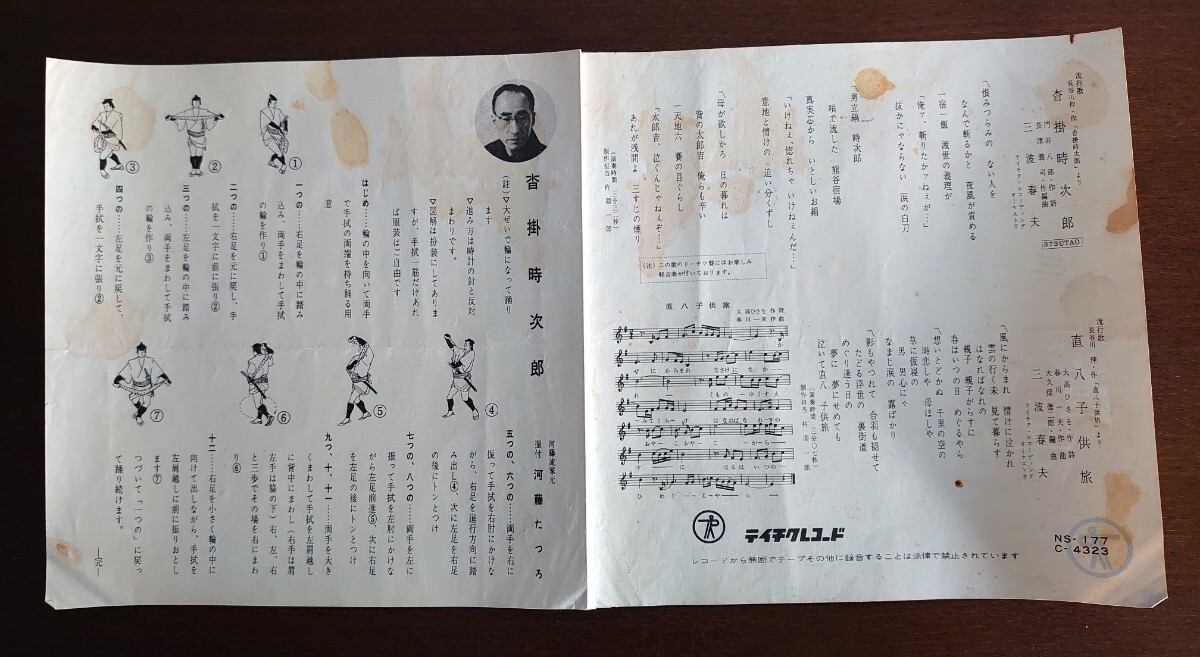 流行歌
長谷川伸・作「沓掛時次郎」より
沓掛時次郎
門井八郎・作詩
長津義司・作編曲
三波春夫
テイチク・レコーディング・オーケストラ
373UTAO
〽恨みつらみの ない人を
なんで斬るかと 夜風が責める
一宿一飯 渡世の義理が
「俺ァ、斬りたかァねぇが…」
抜かにゃならない 涙の白刀
〽男立縞 時次郎
唄で流した 熊谷宿場
真実芯から いとしいお絹
「いけねぇ、惚れちゃ いけねぇんだ…」
意地と情けの 追い分くずし
〽母が欲しかろ 日の暮れは
背の太郎吉 俺らも辛い
一天地六 賽の目ぐらし
「太郎吉、泣くんじゃねぇぞ…」
あれが浅間よ 三すじの煙り
(演奏時間 三分三二秒)
制作担当
(注) この歌のドーナツ盤にはお楽しみ
軽音楽が付いております。
流行歌
長谷川 伸・作「直八子供旅」より
直八子供旅
大高ひさを・作詩
春川一夫・作曲
大久保徳二郎・編曲
三波春夫
テイチク・レコーディング・オーケストラ
〽風にからまれ 情けに泣かれ
雲の行く末 見て暮らす
はなればなれの
親子 親子がらすに
春はいつの日 めぐるやら
〽想いとどかぬ 千里の空の
瑞恋しや 母ほしや
草に仮寝の
男 男心にゃ
なまじ涙の 露ばかり
〽影もやつれて 合羽も褪せて
たどる浮世の 裏街道
めぐり逢う日の
夢に 夢にせめても
泣いて直八 子供旅
(演奏時間 三分〇七秒)
制作担当
直八子供旅
大高ひさを 作詩
春川一夫 作曲
テイチクレコード
レコードから無断でテープその他に録音することは法律で禁止されています
NS-177
C-4323
沓掛時次郎
河藤流家元
振付 河藤たつろ
(註) ▽大ぜいで輪になって踊り
ます
▽進み方は時計の針と反対
まわりです。
▽図解は扮装にしてありま
すが、手拭一筋だけあれ
ば服装はご自由です
はじめ……輪の中を向いて両手
で手拭の両端を持ち踊る用
意
一つの……右足を輪の中に踏み
込み、両手をまわして手拭
の輪を作り①
二つの……右足を元に戻し、手
拭を一文字に前に張り②
三つの……左足を輪の中に踏み
込み、両手をまわして手拭
の輪を作り③
四つの……左足を元に戻して、
手拭を一文字に張り②
①
②
③
五つの、六つの……両手を右に
振って手拭を右肘にかけな
がら、右足を進行方向に踏
み出し④、次に左足を右足
の後にトンとつけ
七つの、八つの……両手を左に
振って手拭を左肘にかけな
がら左足前進⑤、次に右足
を左足の後にトンとつけ
九つ、十、十一……両手を大き
くまわして手拭を左肩越し
に背中にまわし(右手は肩
左手は脇の下)右、左、右
と三歩でその場を右にまわ
り⑥
十二……右足を小さく輪の中に
向けて出しながら、手拭を
左肩越しに前に振りおとし
ます⑦
つづいて「一つの」に戻っ
て踊り続けます。
―完―
④
⑤
⑥
⑦